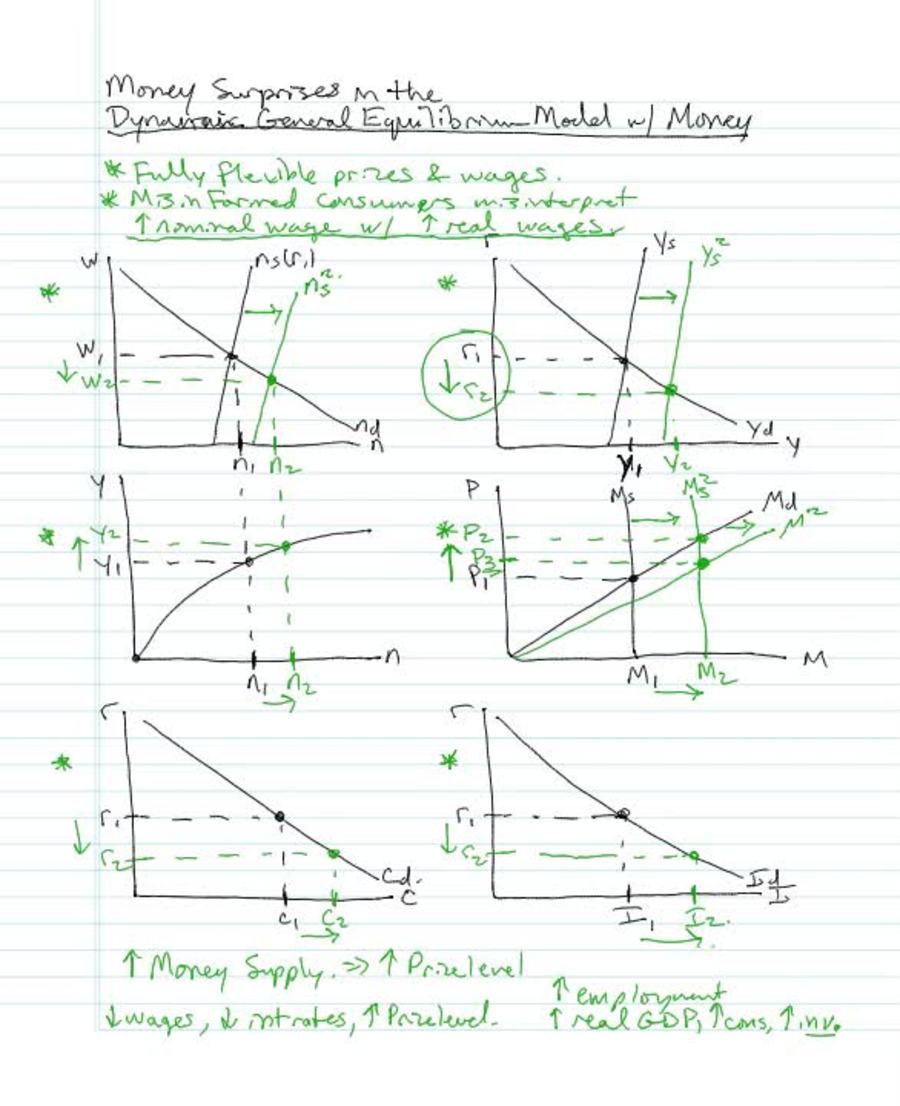 Money Surprises in the
Dynamic General Equilibrium Model w/ Money
* Fully flexible prizes & wages.
* Misinformed consumers misinterpret
↑ nominal wage w/ ↑ real wages.
* W ns(r,) ns².
W₁
↓ W₂
nd
n
n₁ n₂
* r Ys Ys²
r₁
↓ r₂
Yd Y
Y₁ Y₂
* Y
Y₂
↑ Y₁
n
n₁ → n₂
P Ms Ms² Md
* P₂
↑ P₃
P₁
M
M₁ → M₂
* r
r₁
↓ r₂
Cd.
C
C₁ → C₂
* r
r₁
↓ r₂
Id
I
I₁ → I₂.
↑ Money Supply. => ↑ Prizelevel
↓ wages, ↓ int rates, ↑ Prizelevel.
↑ employment
↑ real GDP, ↑ cons, ↑ inv.